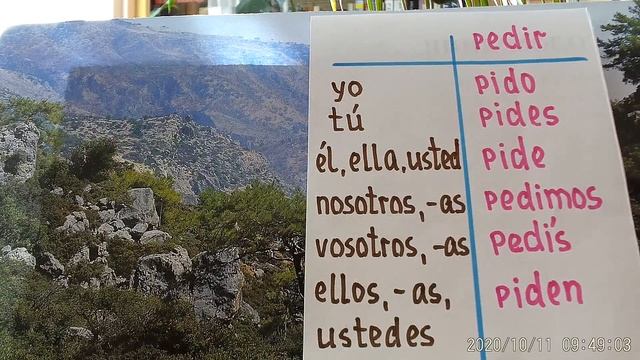 pedir
yo pido
tú pides
él, ella, usted pide
nosotros, -as pedimos
vosotros, -as pedís
ellos, -as, piden
ustedes
2020/10/11 09:49:03